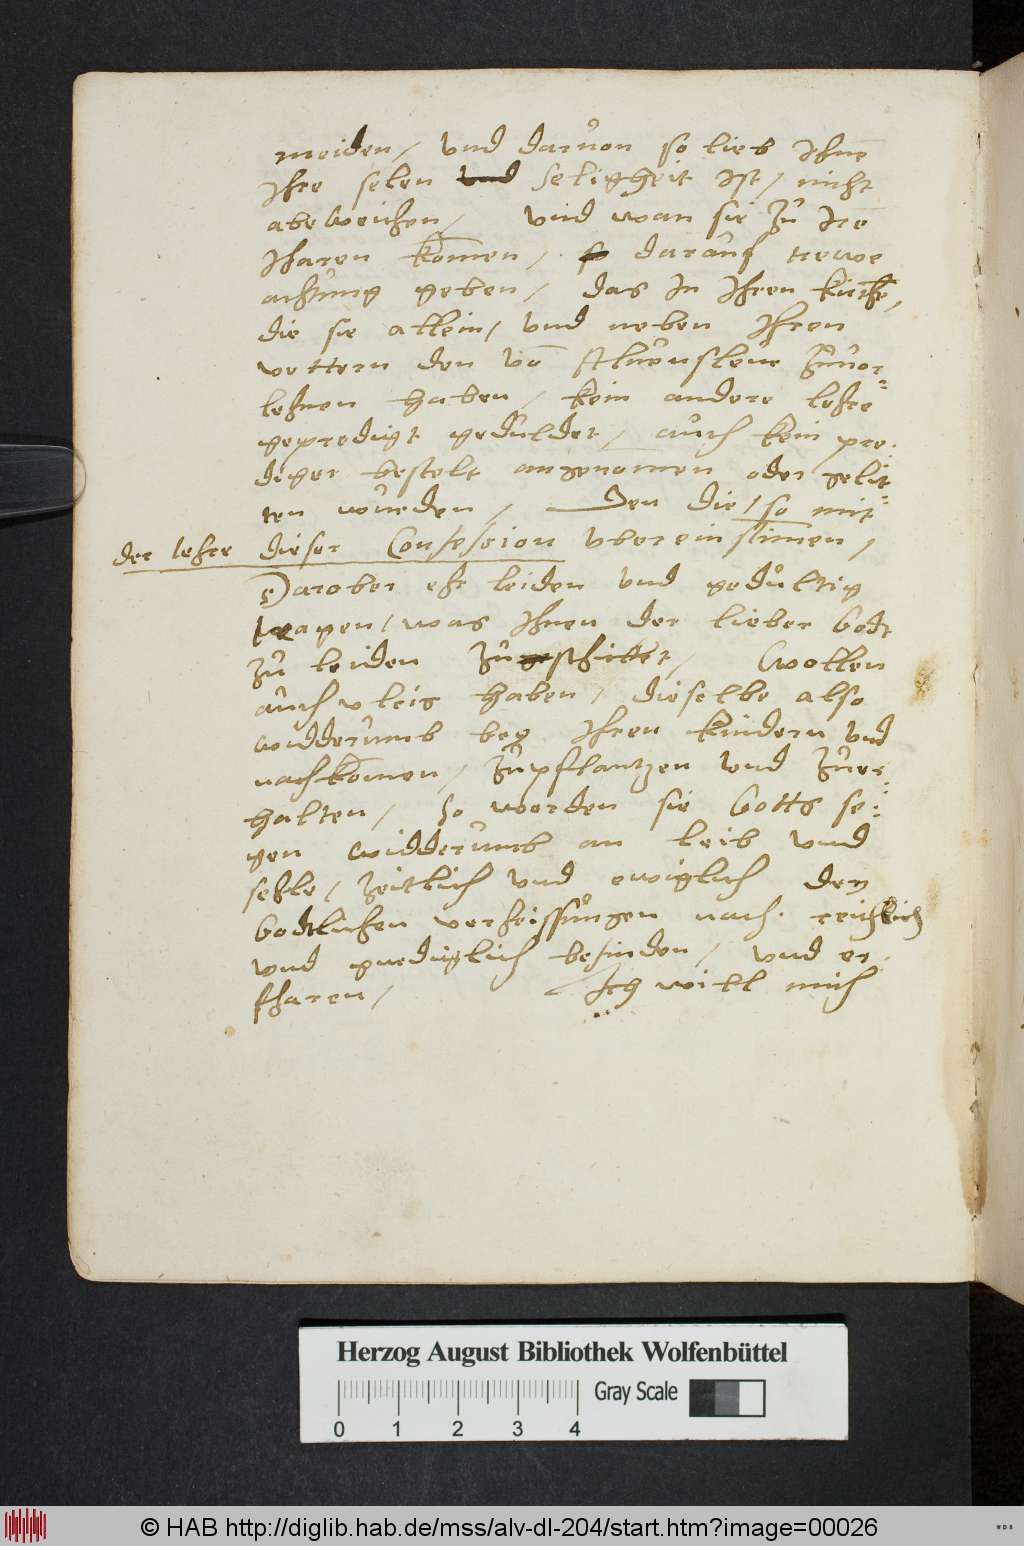 meiden, und daruon so lieb Ihnē
Ihre selen und seligheit ist, nicht
abeweichen, und wan sie zu Irē
Iharen komen, so darauf trewe
achtung geben, das in Ihren kirchē,
die sie allein, und neben Ihren
vettern den vō Aluensleue zuuor-
lehnen haben, kein andere lehre
gepredigt geduldet, auch kein pre-
diger bestelt angenomen oder gelit-
ten wurden, Den die, so mit
der lehre dieser Confession vbereinstimen,
Darober ehr leiden und gedultig
tragen, was Ihnen der lieber Godt
zu leiden zugeschicket, Wollen
auch vleis haben, dieselbe also
widderumb bey Ihren kindern und
nachkomen, zupflantzen und zuer-
halten, So werden sie Gotts se-
gen widderumb an leib und
sehle, zeitlich und ewiglich den
Godtlichen verheissungen nach reichlich
und gnediglich befinden, und er-
fharen, Ich will mich
Herzog August Bibliothek Wolfenbüttel
0 1 2 3 4 Gray Scale
© HAB http://diglib.hab.de/mss/alv-dl-204/start.htm?image=00026